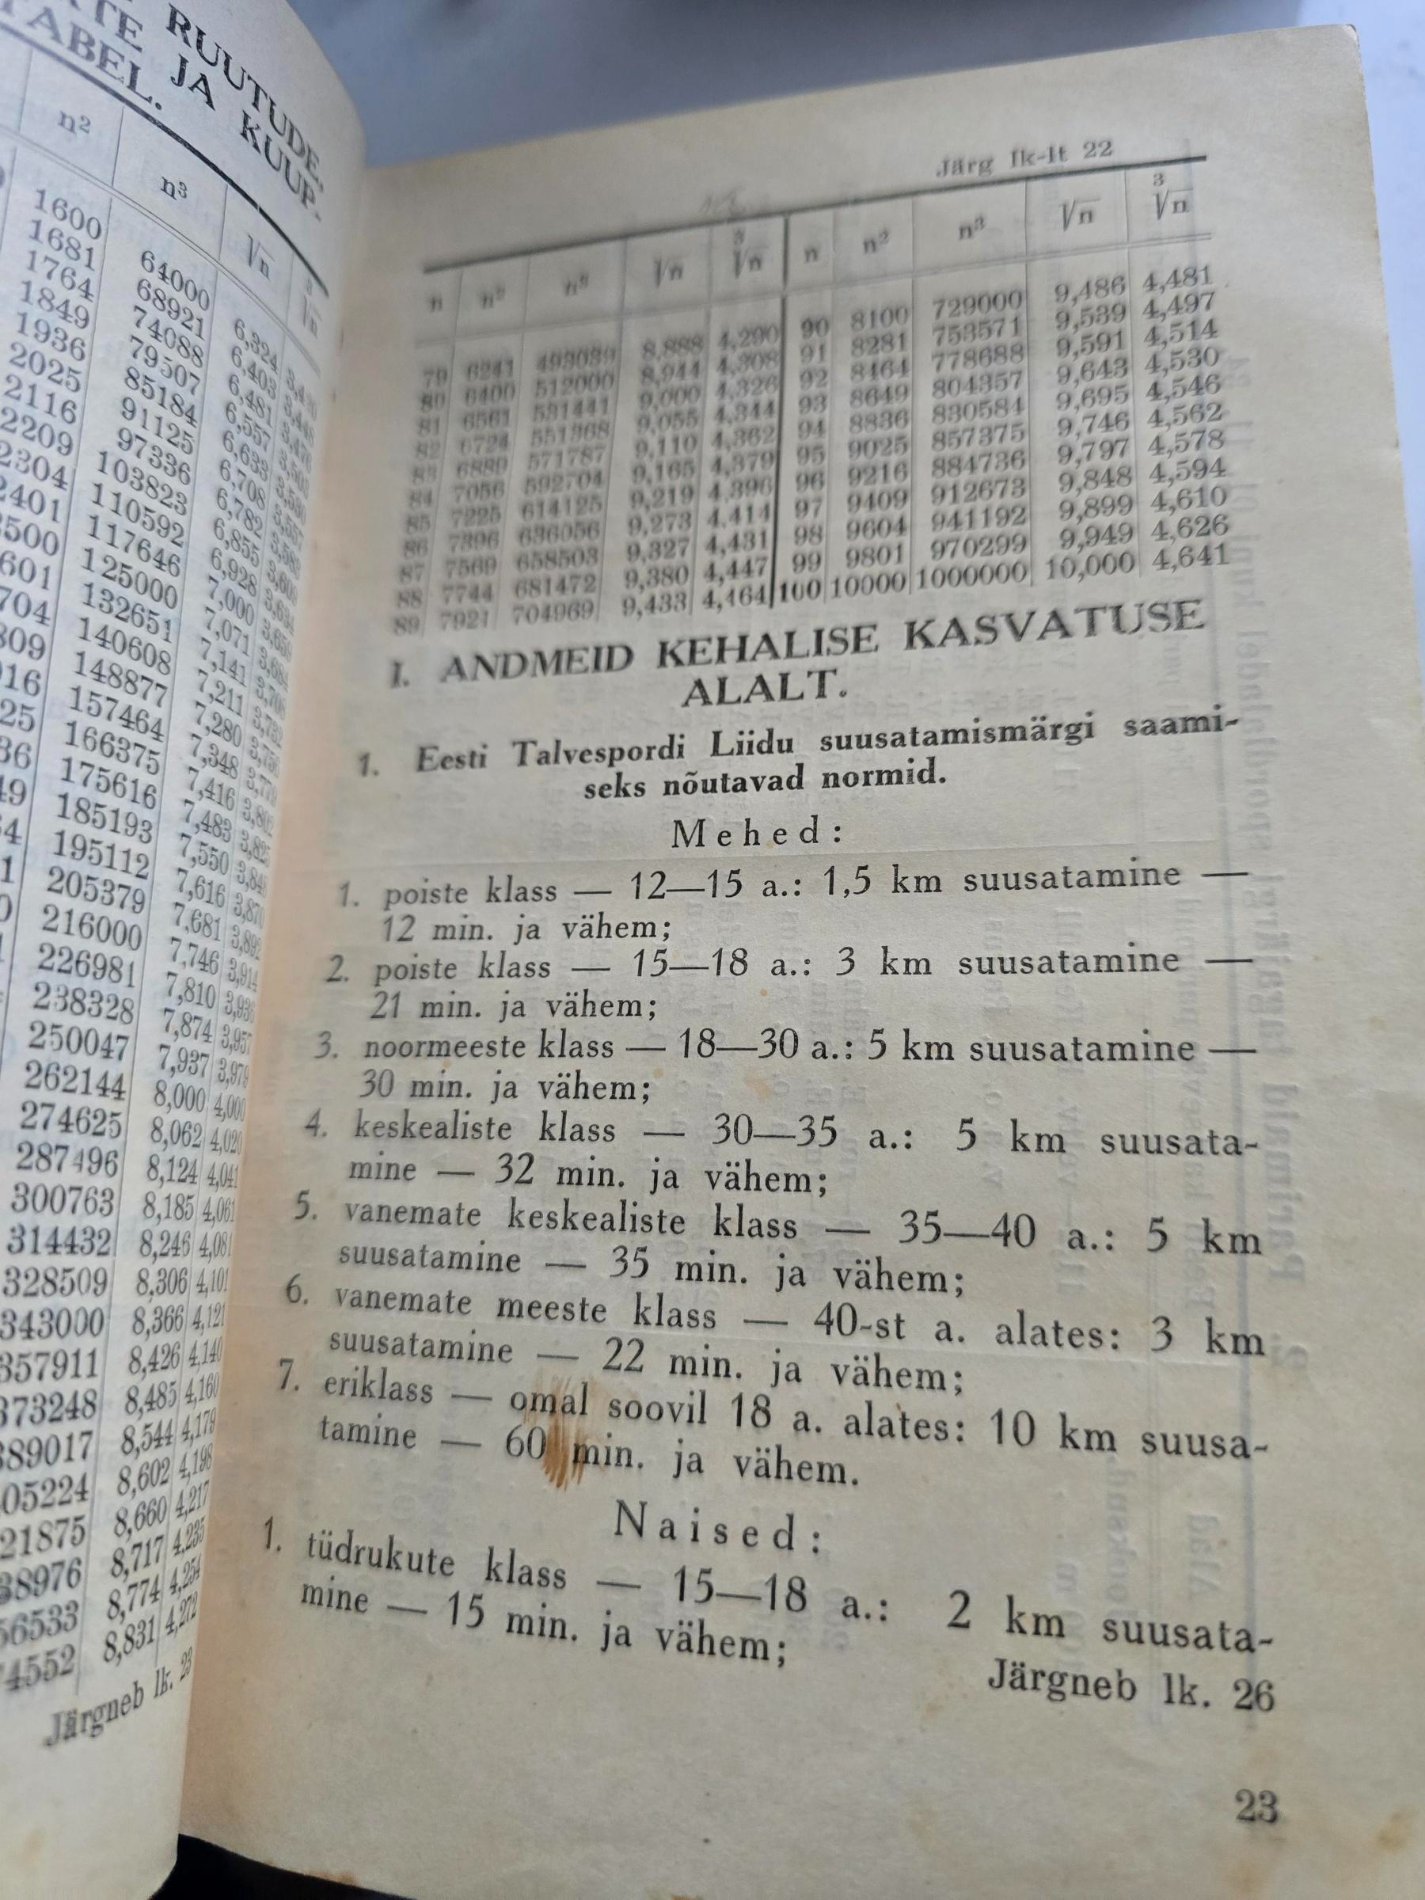 RUUTUDE,
JA KUUP-
TABEL.
n² n³ √n ³√n
1600 64000 6,324
1681 68921 6,403
1764 74088 6,481
1849 79507 6,557
1936 85184 6,633
2025 91125 6,708
2116 97336 6,782
2209 103823 6,855
2304 110592 6,928
2401 117646 7,000
125000 7,071
132651 7,141
140608 7,211
148877 7,280
157464 7,348
166375 7,416
175616 7,483
185193 7,550
195112 7,616
205379 7,681
216000 7,746 3,914
226981 7,810
238328 7,874 3,957
250047 7,937 3,979
262144 8,000 4,000
274625 8,062 4,020
287496 8,124 4,041
300763 8,185 4,061
314432 8,246 4,081
328509 8,306 4,101
343000 8,366 4,121
357911 8,426 4,140
373248 8,485 4,160
389017 8,544 4,179
05224 8,602 4,198
21875 8,660 4,217
38976 8,717 4,235
56533 8,774 4,254
74552 8,831 4,272
Järgneb lk. 23
Järg lk-lt 22
n n² n³ √n ³√n n n² n³ √n ³√n
79 6241 493039 8,888 4,290 90 8100 729000 9,486 4,481
80 6400 512000 8,944 4,308 91 8281 753571 9,539 4,497
81 6561 531441 9,000 4,326 92 8464 778688 9,591 4,514
82 6724 551368 9,055 4,344 93 8649 804357 9,643 4,530
83 6889 571787 9,110 4,362 94 8836 830584 9,695 4,546
84 7056 592704 9,165 4,379 95 9025 857375 9,746 4,562
85 7225 614125 9,219 4,396 96 9216 884736 9,797 4,578
86 7396 636056 9,273 4,414 97 9409 912673 9,848 4,594
87 7569 658503 9,327 4,431 98 9604 941192 9,899 4,610
88 7744 681472 9,380 4,447 99 9801 970299 9,949 4,626
89 7921 704969 9,433 4,464 100 10000 1000000 10,000 4,641
I. ANDMEID KEHALISE KASVATUSE
ALALT.
1. Eesti Talvespordi Liidu suusatamismärgi saami-
seks nõutavad normid.
Mehed:
1. poiste klass — 12—15 a.: 1,5 km suusatamine —
12 min. ja vähem;
2. poiste klass — 15—18 a.: 3 km suusatamine —
21 min. ja vähem;
3. noormeeste klass — 18—30 a.: 5 km suusatamine —
30 min. ja vähem;
4. keskealiste klass — 30—35 a.: 5 km suusata-
mine — 32 min. ja vähem;
5. vanemate keskealiste klass — 35—40 a.: 5 km
suusatamine — 35 min. ja vähem;
6. vanemate meeste klass — 40-st a. alates: 3 km
suusatamine — 22 min. ja vähem;
7. eriklass — omal soovil 18 a. alates: 10 km suusa-
tamine — 60 min. ja vähem.
Naised:
1. tüdrukute klass — 15—18 a.: 2 km suusata-
mine — 15 min. ja vähem;
Järgneb lk. 26
23